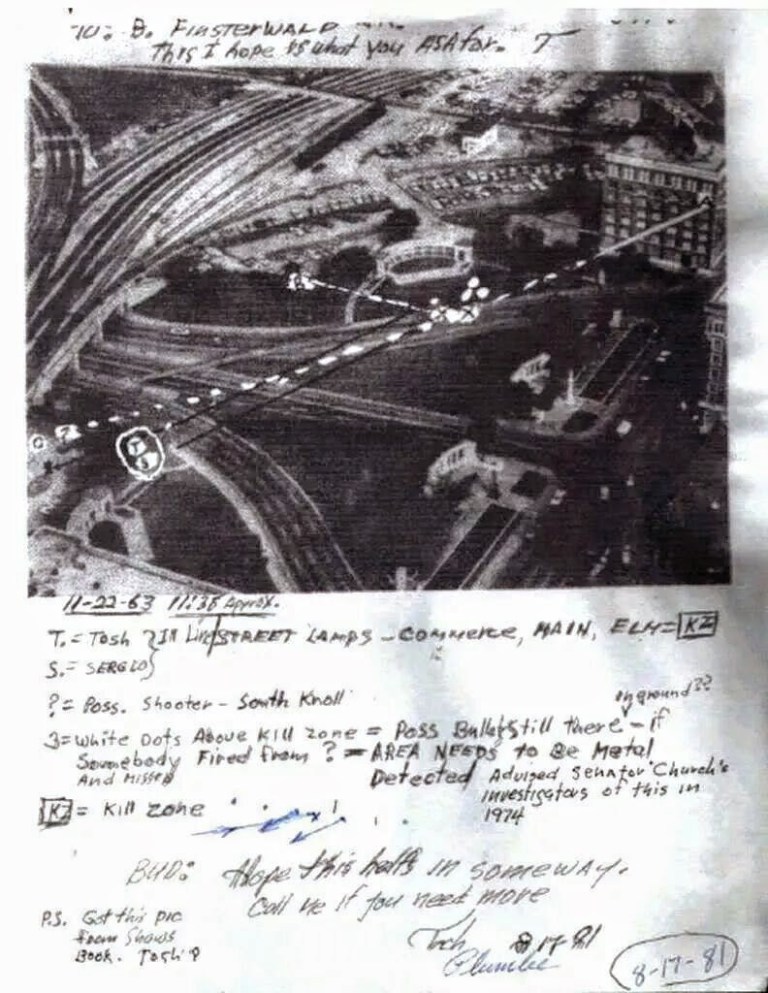 TO: B. FINSTERWALD
This I hope is what you ASK for. T
? T S
11-22-63 11:35 Approx.
T. = Tosh } IN Line/STREET LAMPS - COMMERCE, MAIN, ELM = KZ
S. = SERGIO
? = Poss. Shooter - South Knoll
on ground??
3 = White Dots Above Kill zone = Poss Bullets still there - if
Somebody Fired from ? = AREA NEEDS to Be Metal
And Missed Detected Advised Senator Church's
investigators of this in
1974
KZ = Kill zone
BUD: Hope this helps in someway.
Call me if you need more
P.S. Got this pic
from Shaws
Book. Tosh P
Tosh 8-17-81
Plumlee
8-17-81